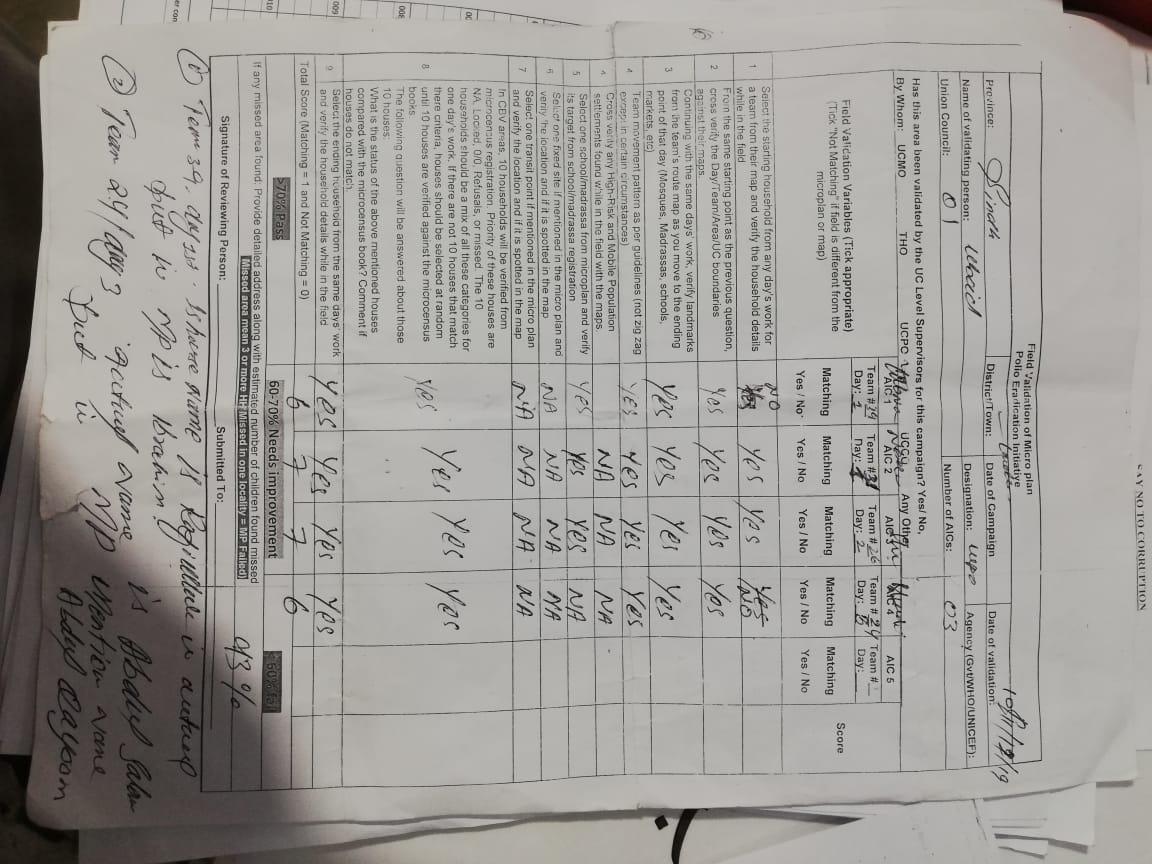 SAY NO TO CORRUPTION
Field Validation of Micro plan
Polio Eradication Initiative
Province: Sindh District/Town: Date of Campaign Date of validation:
Name of validating person: Designation: Agency (Gvt/WHO/UNICEF):
Union Council: 01 Number of AICs: 03
Has this area been validated by the UC Level Supervisors for this campaign? Yes/ No,
By Whom: UCMO THO UCPC UCCO Any Other
Field Validation Variables (Tick appropriate)
(Tick "Not Matching" if field is different from the
microplan or map)
AIC 1 AIC 2 AIC 5
Team # Team # Team # 26 Team # 24 Team #
Day: Day: Day: 2 Day: Day:
Matching Matching Matching Matching Matching Score
Yes / No Yes / No Yes / No Yes / No Yes / No
1 Select the starting household from any day's work for
a team from their map and verify the household details
while in the field
NO Yes Yes Yes NO
2 From the same starting point as the previous question,
cross verify the Day/Team/Area/UC boundaries
against their maps.
Yes Yes Yes Yes
3 Continuing with the same days' work, verify landmarks
from the team's route map as you move to the ending
point of that day (Mosques, Madrassas, schools,
markets, etc)
Yes Yes Yes Yes
4 Team movement pattern as per guidelines (not zig zag
except in certain circumstances)
Yes Yes Yes Yes
4 Cross verify any High-Risk and Mobile Population
settlements found while in the field with the maps.
NA NA NA
5 Select one school/madrassa from microplan and verify
its target from school/madrassa registration
Yes Yes Yes NA
6 Select one fixed site if mentioned in the micro plan and
verify the location and if it is spotted in the map
NA NA NA NA
7 Select one transit point if mentioned in the micro plan
and verify the location and if it is spotted in the map
NA NA NA NA
In CBV areas, 10 households will be verified from
microcensus registration. Priority of these houses are
NA, Locked, 0/0, Refusals, or missed. The 10
households should be a mix of all these categories for
one day's work. If there are not 10 houses that match
there criteria, houses should be selected at random
until 10 houses are verified against the microcensus
books.
8 The following question will be answered about those
10 houses.
What is the status of the above mentioned houses
compared with the microcensus book? Comment if
houses do not match.
Yes Yes Yes Yes
9 Select the ending household from the same days' work
and verify the household details while in the field
Yes Yes Yes Yes
Total Score (Matching = 1 and Not Matching = 0) 6 7 7 6
>70% Pass 60-70% Needs improvement
93%
If any missed area found: Provide detailed address along with estimated number of children found missed
Missed area mean 3 or more HH Missed in one locality = MP Failed)
Signature of Reviewing Person: Submitted To:
① Team 39. day 1st. name is in actual
but in MP is
② Team 24 day 3 actual name is Abdul
but in MP mention name
Abdul